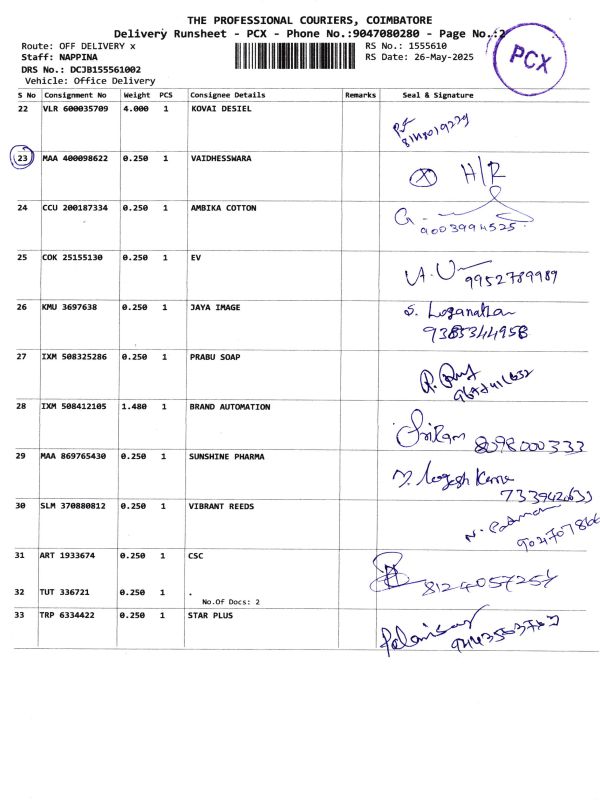 THE PROFESSIONAL COURIERS, COIMBATORE
Delivery Runsheet - PCX - Phone No.:9047080280 - Page No.:2
Route: OFF DELIVERY x
RS No.: 1555610
Staff: NAPPINA
RS Date: 26-May-2025
DRS No.: DCJB155561002
Vehicle: Office Delivery
PCX
S No Consignment No Weight PCS Consignee Details Remarks Seal & Signature
22 VLR 600035709 4.000 1 KOVAI DESIEL
23 MAA 400098622 0.250 1 VAIDHESSWARA
H/R
24 CCU 200187334 0.250 1 AMBIKA COTTON
9003994525
25 COK 25155130 0.250 1 EV
9952789989
26 KMU 3697638 0.250 1 JAYA IMAGE
S. Loganathan
9385344958
27 IXM 508325286 0.250 1 PRABU SOAP
28 IXM 508412105 1.480 1 BRAND AUTOMATION
Sriram 8098000333
29 MAA 869765430 0.250 1 SUNSHINE PHARMA
30 SLM 370880812 0.250 1 VIBRANT REEDS
31 ART 1933674 0.250 1 CSC
8124057254
32 TUT 336721 0.250 1 .
No.Of Docs: 2
33 TRP 6334422 0.250 1 STAR PLUS